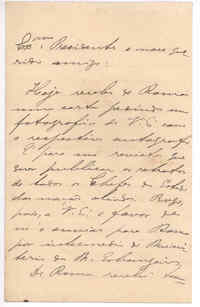 Exmo. Presidente e meu que
rido amigo:
Hoje recebi de Roma
uma carta pedindo um
fotografia de V. E. com
o respectivo autografo.
É para um revista que
quer publicar os retratos
de todos os Chefes de Esta
das nações aliadas. Rogo,
pois, a V. E. o favor de
m'o enviar para Roma
por intermedio do Minis
terio dos N. Estrangeiros.
De Roma recebi